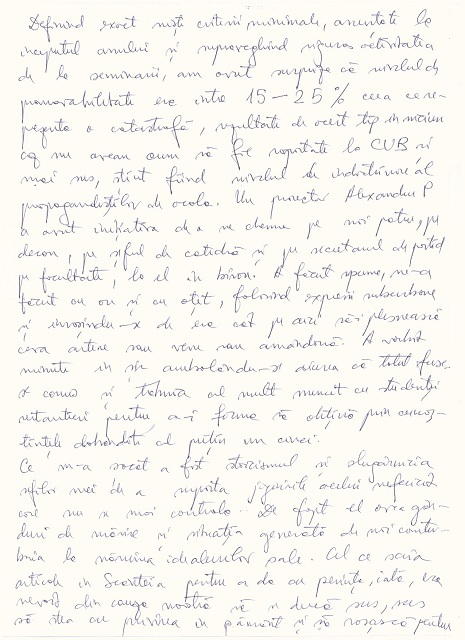 Definind exact niște criterii minimale, anunțate la
începutul anului și supraveghind riguros activitatea
de la seminarii, am avut surpriza că nivelul de
promovabilitate era între 15–25% ceea ce re-
prezenta o catastrofă, rezultate de acest tip în niciun
caz nu aveau cum să fie raportate la CUB și
mai sus, știut fiind nivelul de îndrătnire al
propagandiștilor de acolo. Un prorector Alexandru P
a avut inițiativa de a ne chema pe noi patru, pe
decan, pe șeful de catedră și pe secretarul de partid
pe facultate, la el în birou. A făcut spume, ne-a
făcut cu ou și cu oțet, folosind expresii suburbane
și învrosindu-x de era cât pe aci să-i plesnească
ceva artere sau vene sau amândouă. A vorbit
minute în șir ambalându-x aiurea că totul fuse-
x comod și trebuia cel mult muncit cu studenții
restanțieri pentru a-i forma să obțină prin cunoș-
tințele dobândite cel puțin un cinci.
Ce m-a șocat a fost stoicismul și slugărnicia
șefilor mei de a suporta jignirile acelui nefericit
care nu x mai controla. De fapt el era gân-
duri de mărire și situația generată de noi contri-
buia la năruirea idealurilor sale. Cel ce scria
articole în Scânteia pentru a da cu periuța, iată, era
nevoit din cauza noastră să x ducă sus, sus
să stea cu privirea în pământ și să roșească pentru